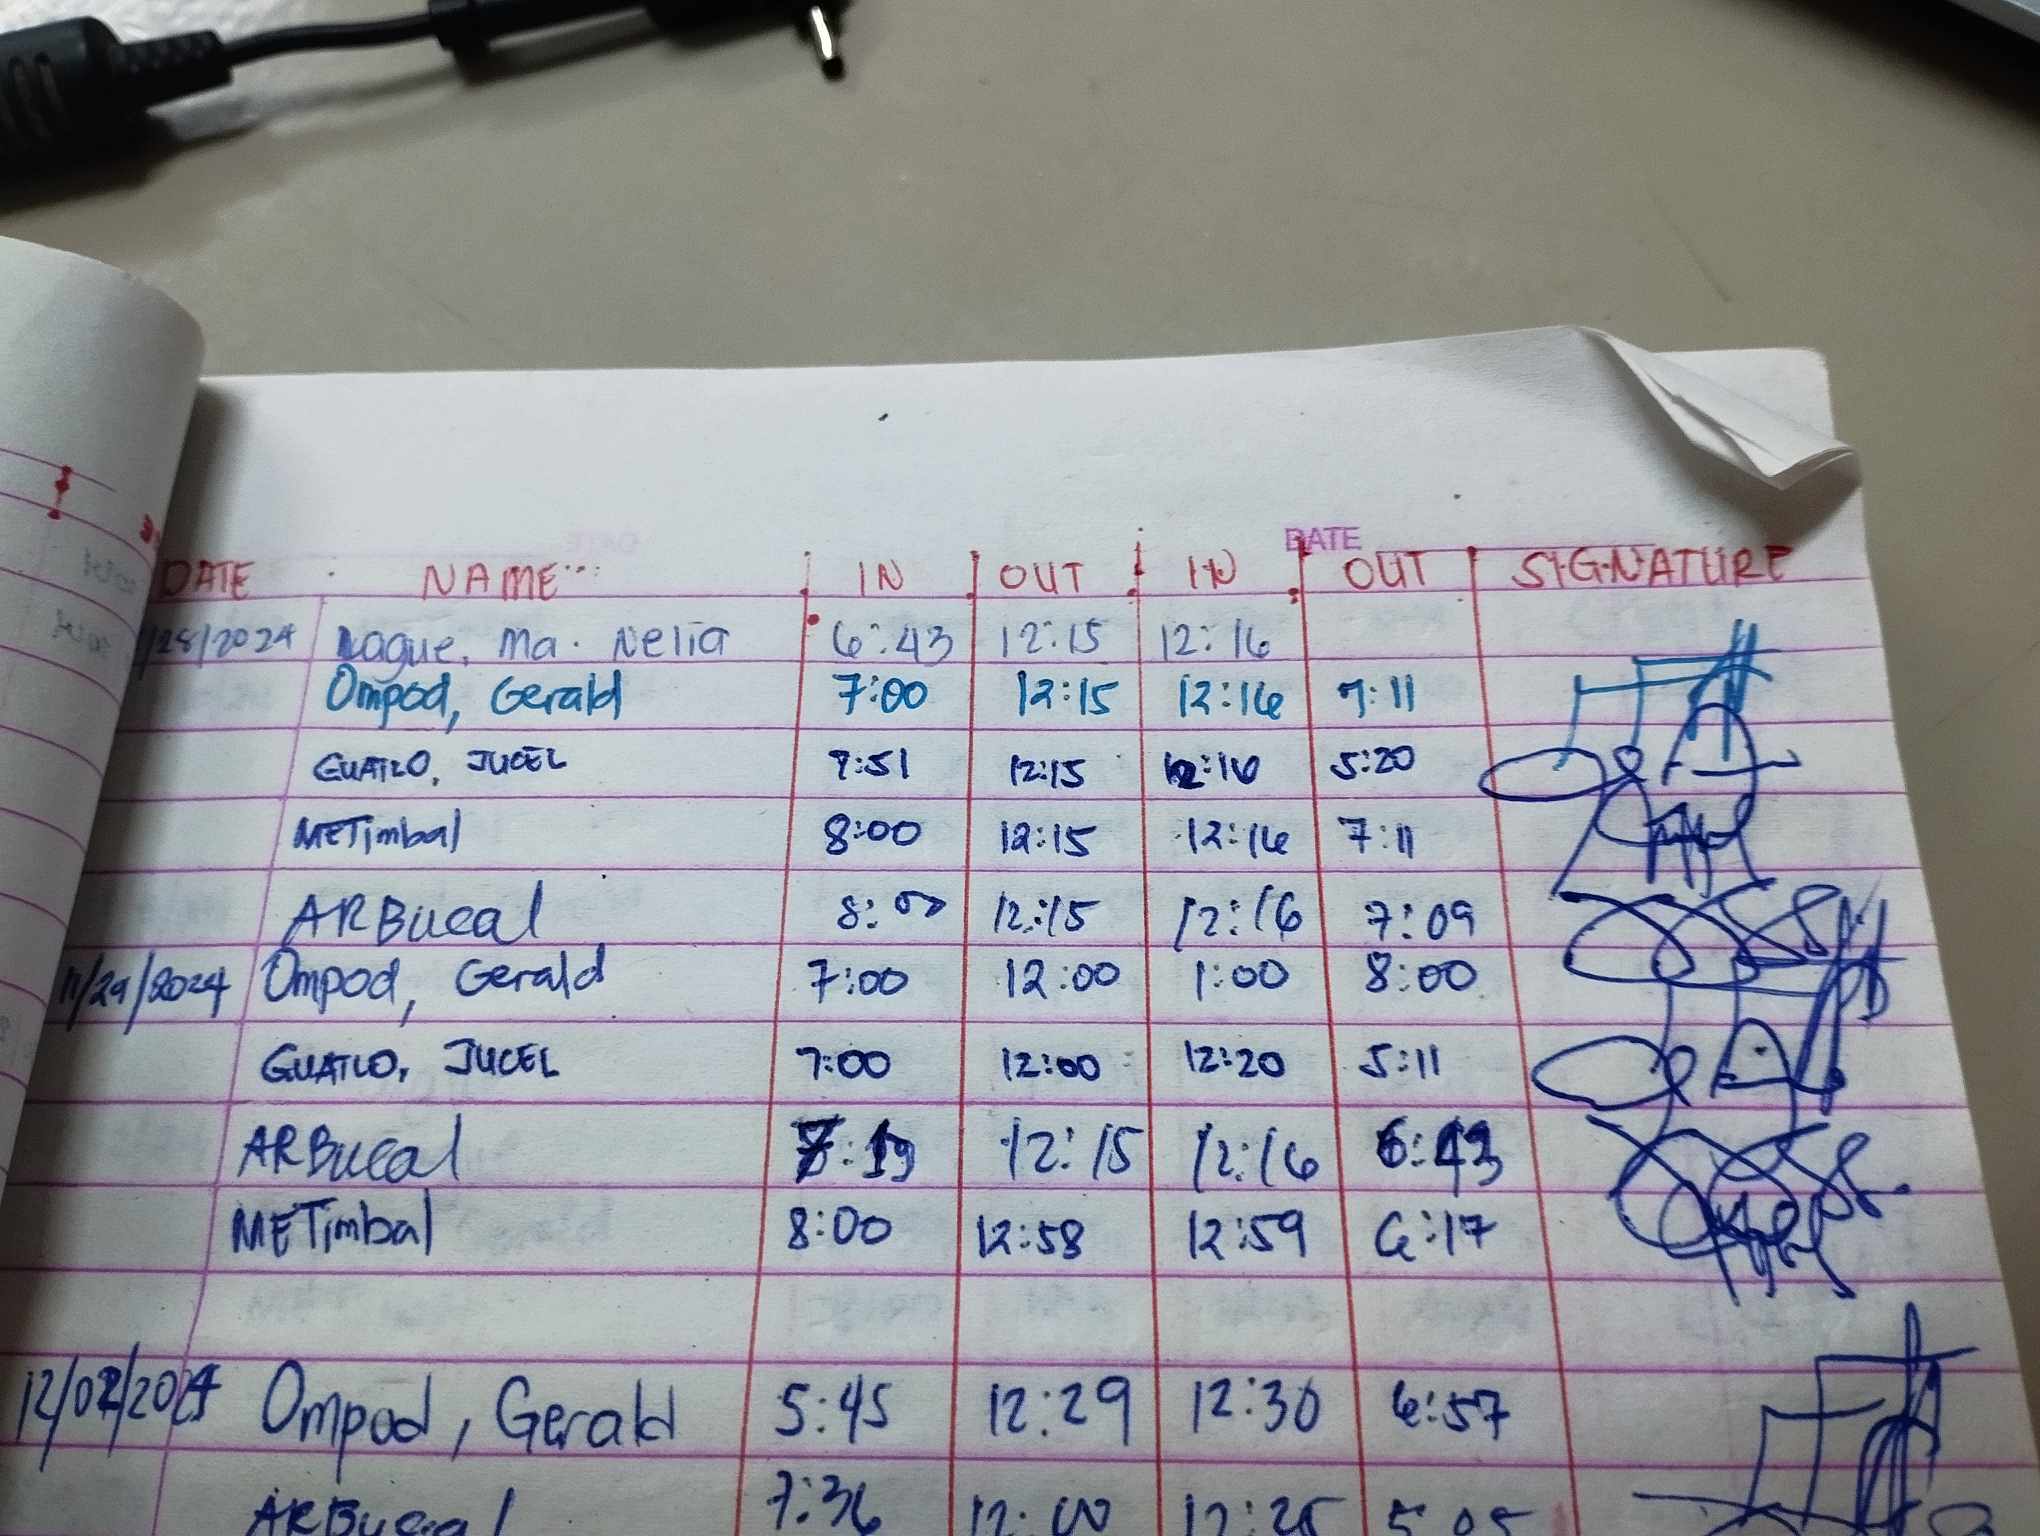 DATE
DATE NAME IN OUT IN OUT SIGNATURE
/28/2024 Ma. Nelia 6:43 12:15 12:16
Ompod, Gerald 7:00 12:15 12:16 7:11
GUATLO, JUCEL 7:51 12:15 12:16 5:20
METimbal 8:00 12:15 12:16 7:11
ARBucal 8:00 12:15 12:16 7:09
11/29/2024 Ompod, Gerald 7:00 12:00 1:00 8:00
GUATLO, JUCEL 7:00 12:00 12:20 5:11
ARBucal 12:15 12:16 6:43
METimbal 8:00 12:58 12:59 6:17
12/02/2024 Ompod, Gerald 5:45 12:29 12:30 6:57
ARBucal 7:36 12:00 12:25 5:05